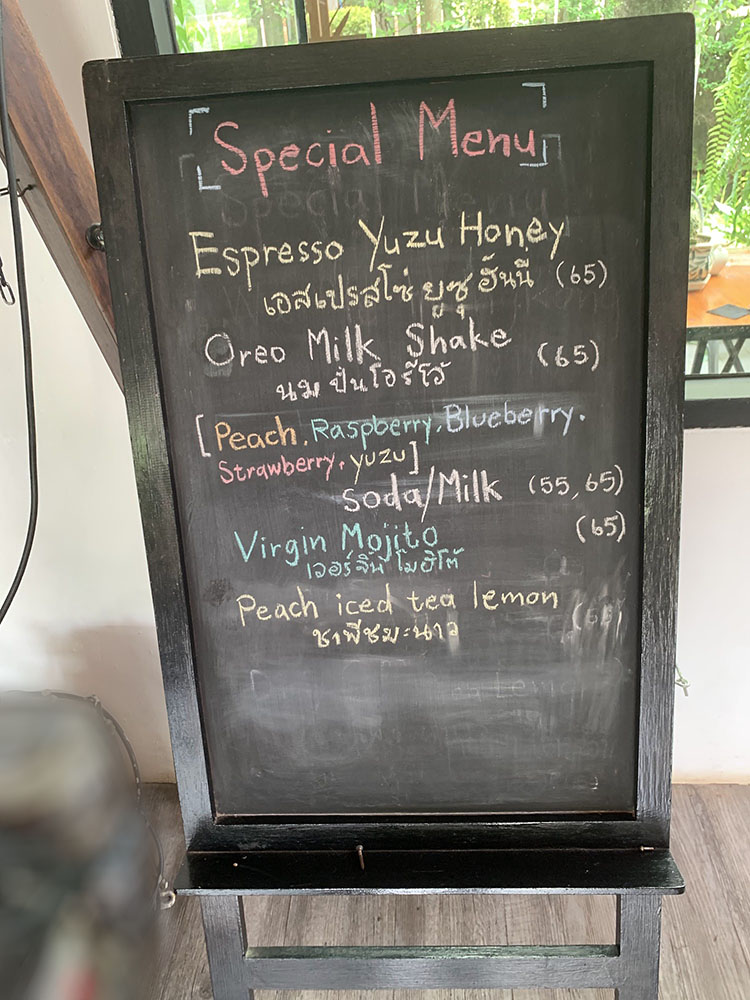 Special Menu
Espresso Yuzu Honey
เอสเปรสโซ่ ยูซุ ฮันนี่ (65)
Oreo Milk Shake (65)
นม ปั่น โอรีโอ้
[Peach, Raspberry, Blueberry,
Strawberry, yuzu]
Soda/Milk (55, 65)
Virgin Mojito (65)
เวอร์จิ้น โมฮิโต้
Peach iced tea lemon
ชาพีชมะนาว